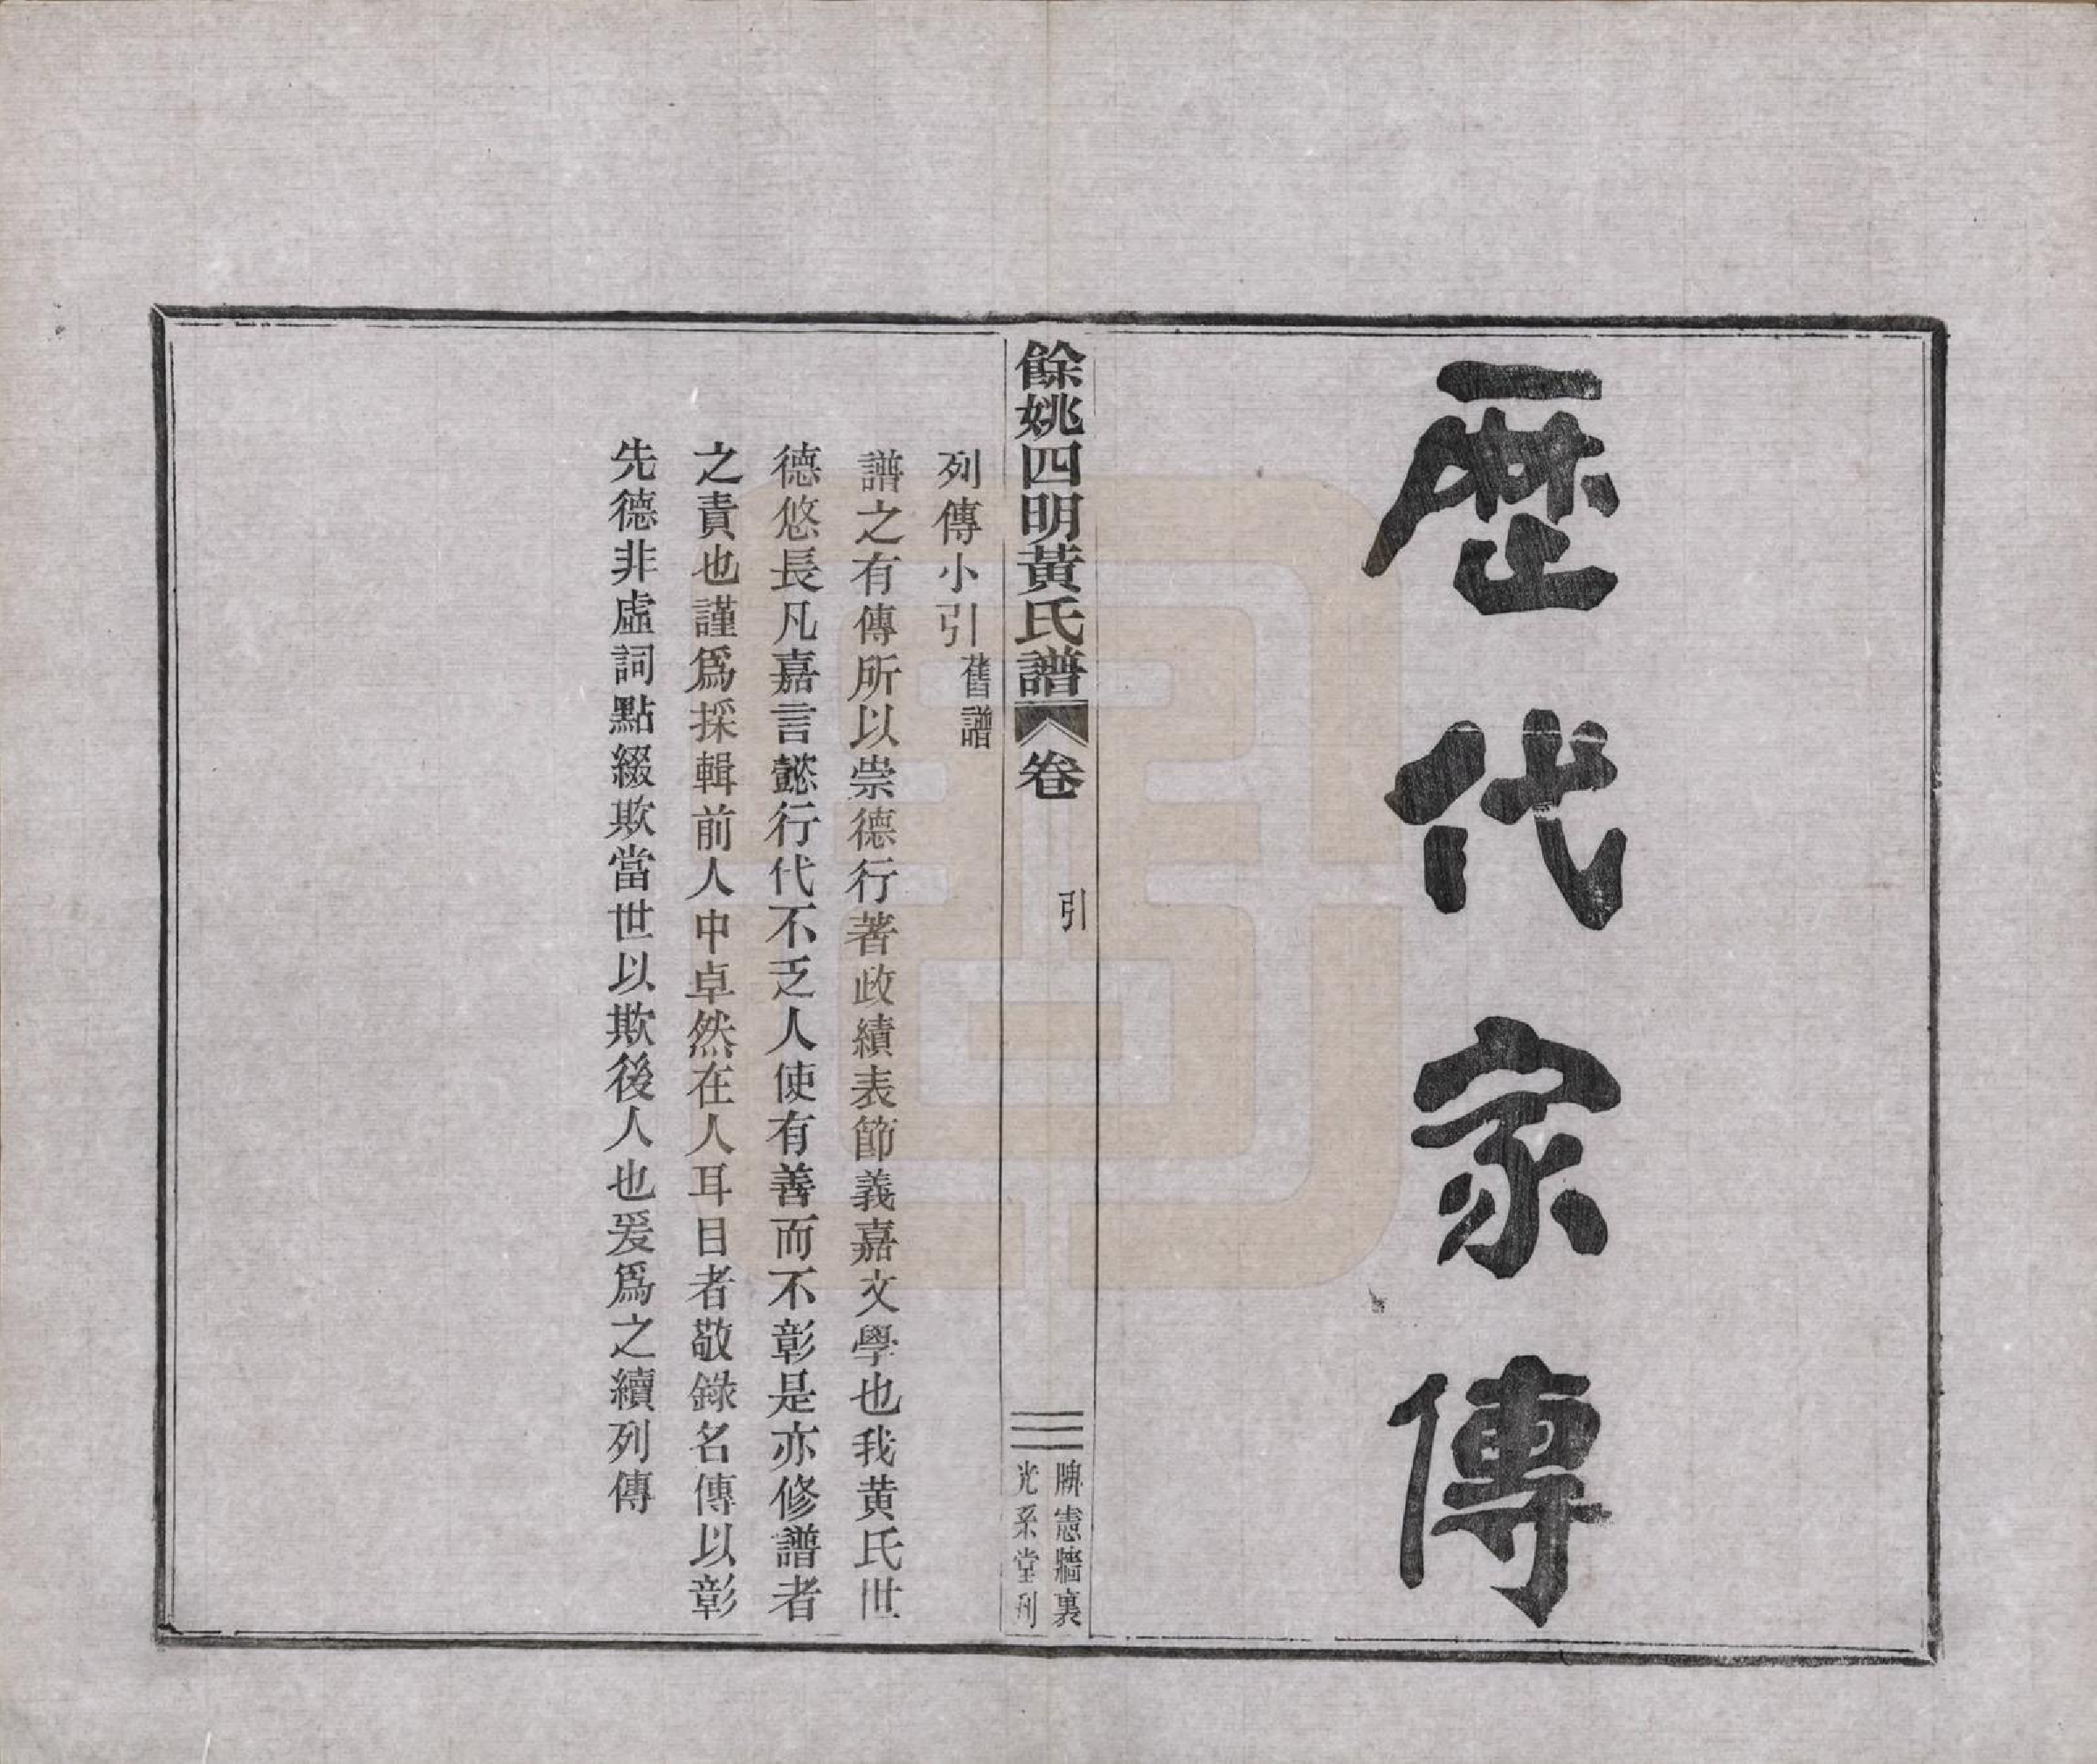 歷代家傳
餘姚四明黃氏譜 卷 引
牌憲牆裏
光裕堂刊
列傳小引 舊譜
譜之有傳所以崇德行著政績表節義嘉文學也我黃氏世
德悠長凡嘉言懿行代不乏人使有善而不彰是亦修譜者
之責也謹爲採輯前人中卓然在人耳目者敬錄名傳以彰
先德非虛詞點綴欺當世以欺後人也爰爲之續列傳